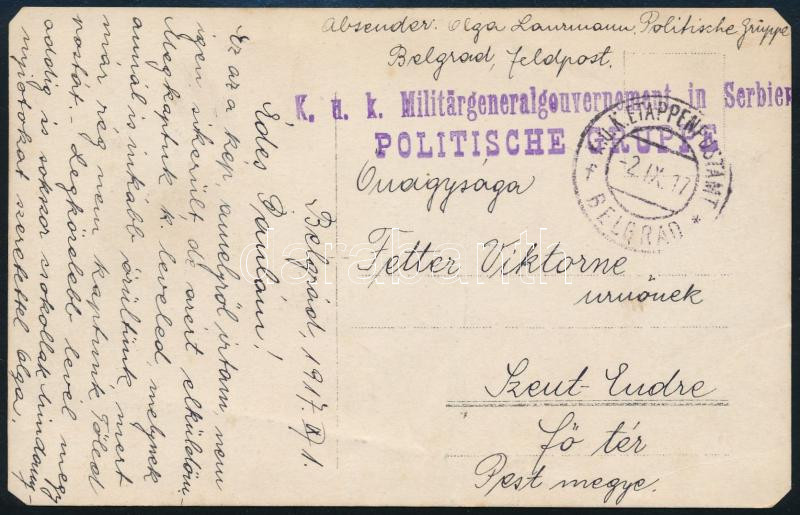 Absender: Olga Laurmann, Politische Gruppe
Belgrad, Feldpost.
K. u. k. Militärgeneralgouvernement in Serbien
POLITISCHE GRUPPE
K.U.K. ETAPPENPOSTAMT
-2.IX.17
BELGRAD
Önagysága
Fetter Viktorne
urnőnek
Szent-Endre
fő tér
Pest megye.
Belgrád, 1917. IX/1.
Édes Paulám!
Ez az a kép, amelyről irtam, nem
igen sikerült, de azért elküldöm.-
Megkaptuk k. leveled, melynek
annál is inkább örültünk mert
már rég nem kaptunk Töled
postát.- Legközelebb levél megy
addig is sokszor csókollak mindany-
nyiotokat szeretettel Olga.
darabanth.com